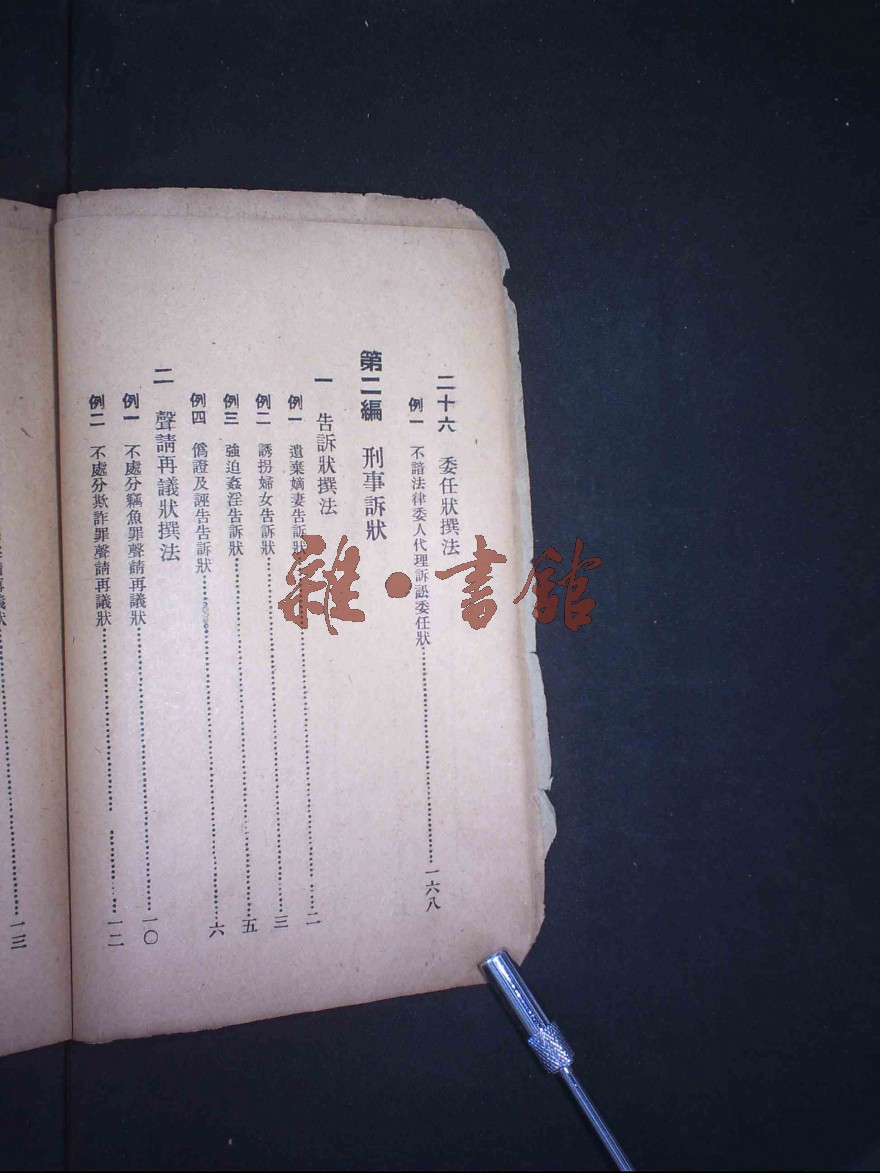 二十六　委任狀撰法
例一　不諳法律委人代理訴訟委任狀……一六八
第二編　刑事訴狀
一　告訴狀撰法
例一　遺棄嫡妻告訴狀……二
例二　誘拐婦女告訴狀……三
例三　強迫姦淫告訴狀……五
例四　僞證及誣告告訴狀……六
二　聲請再議狀撰法
例一　不處分竊魚罪聲請再議狀……一〇
例二　不處分欺詐罪聲請再議狀……一二
請再議狀……一三
雜·書館